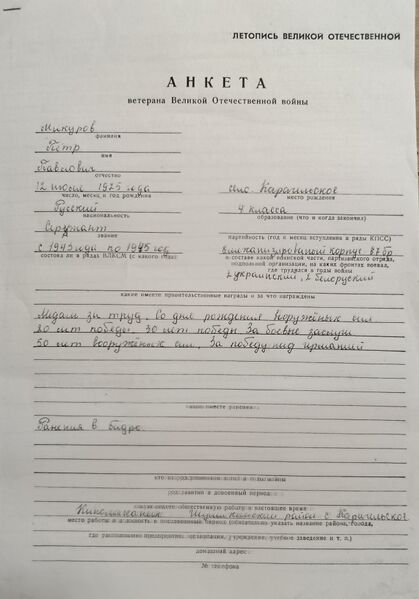 ЛЕТОПИСЬ ВЕЛИКОЙ ОТЕЧЕСТВЕННОЙ
АНКЕТА
ветерана Великой Отечественной войны
Микуров
фамилия
Пётр
имя
Павлович
отчество
12 июля 1925 года
село Карагильское
число, месяц и год рождения
место рождения
Русский
4 класса
национальность
образование (что и когда закончил)
Сержант
звание
партийность (год и месяц вступления в ряды КПСС)
с 1943 года по 1945 год
8 механизированный корпус 67 бр
состоял ли в рядах ВЛКСМ (с какого года)
в составе какой воинской части, партизанского отряда,
подпольной организации, на каких фронтах воевал,
где трудился в годы войны
2 украинский, 2 белоруский
какие имеете правительственные награды и за что награждены
Медали за труд. Со дня рождения вооружёных сил
20 лет победы. 30 лет победы За боевые заслуги
50 лет вооружёных сил, За победу над германией
Ранения в бидро.
общественную работу в настоящее время
Киномеханник район с Карагильское
место работы и должность в послевоенный период (обязательно указать название района, города,
где расположено предприятие, организация, учреждение, учебное заведение и т. п.)
домашний адрес
№ телефона